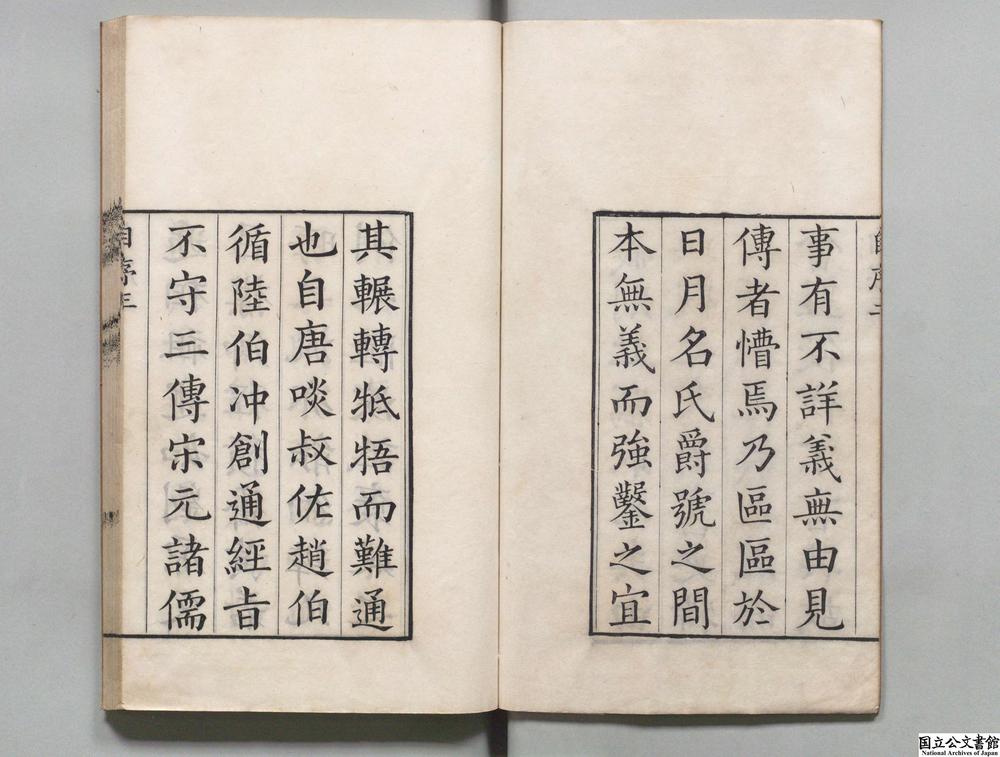 事有不詳義無由見
傳者懵焉乃區區於
日月名氏爵號之間
本無義而強鑿之宜
其輾轉牴牾而難通
也自唐啖叔佐趙伯
循陸伯冲創通經㫖
不守三傳宋元諸儒
自序三
国立公文書館
National Archives of Japan